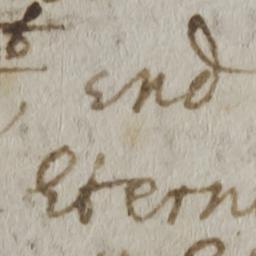 end
Etern